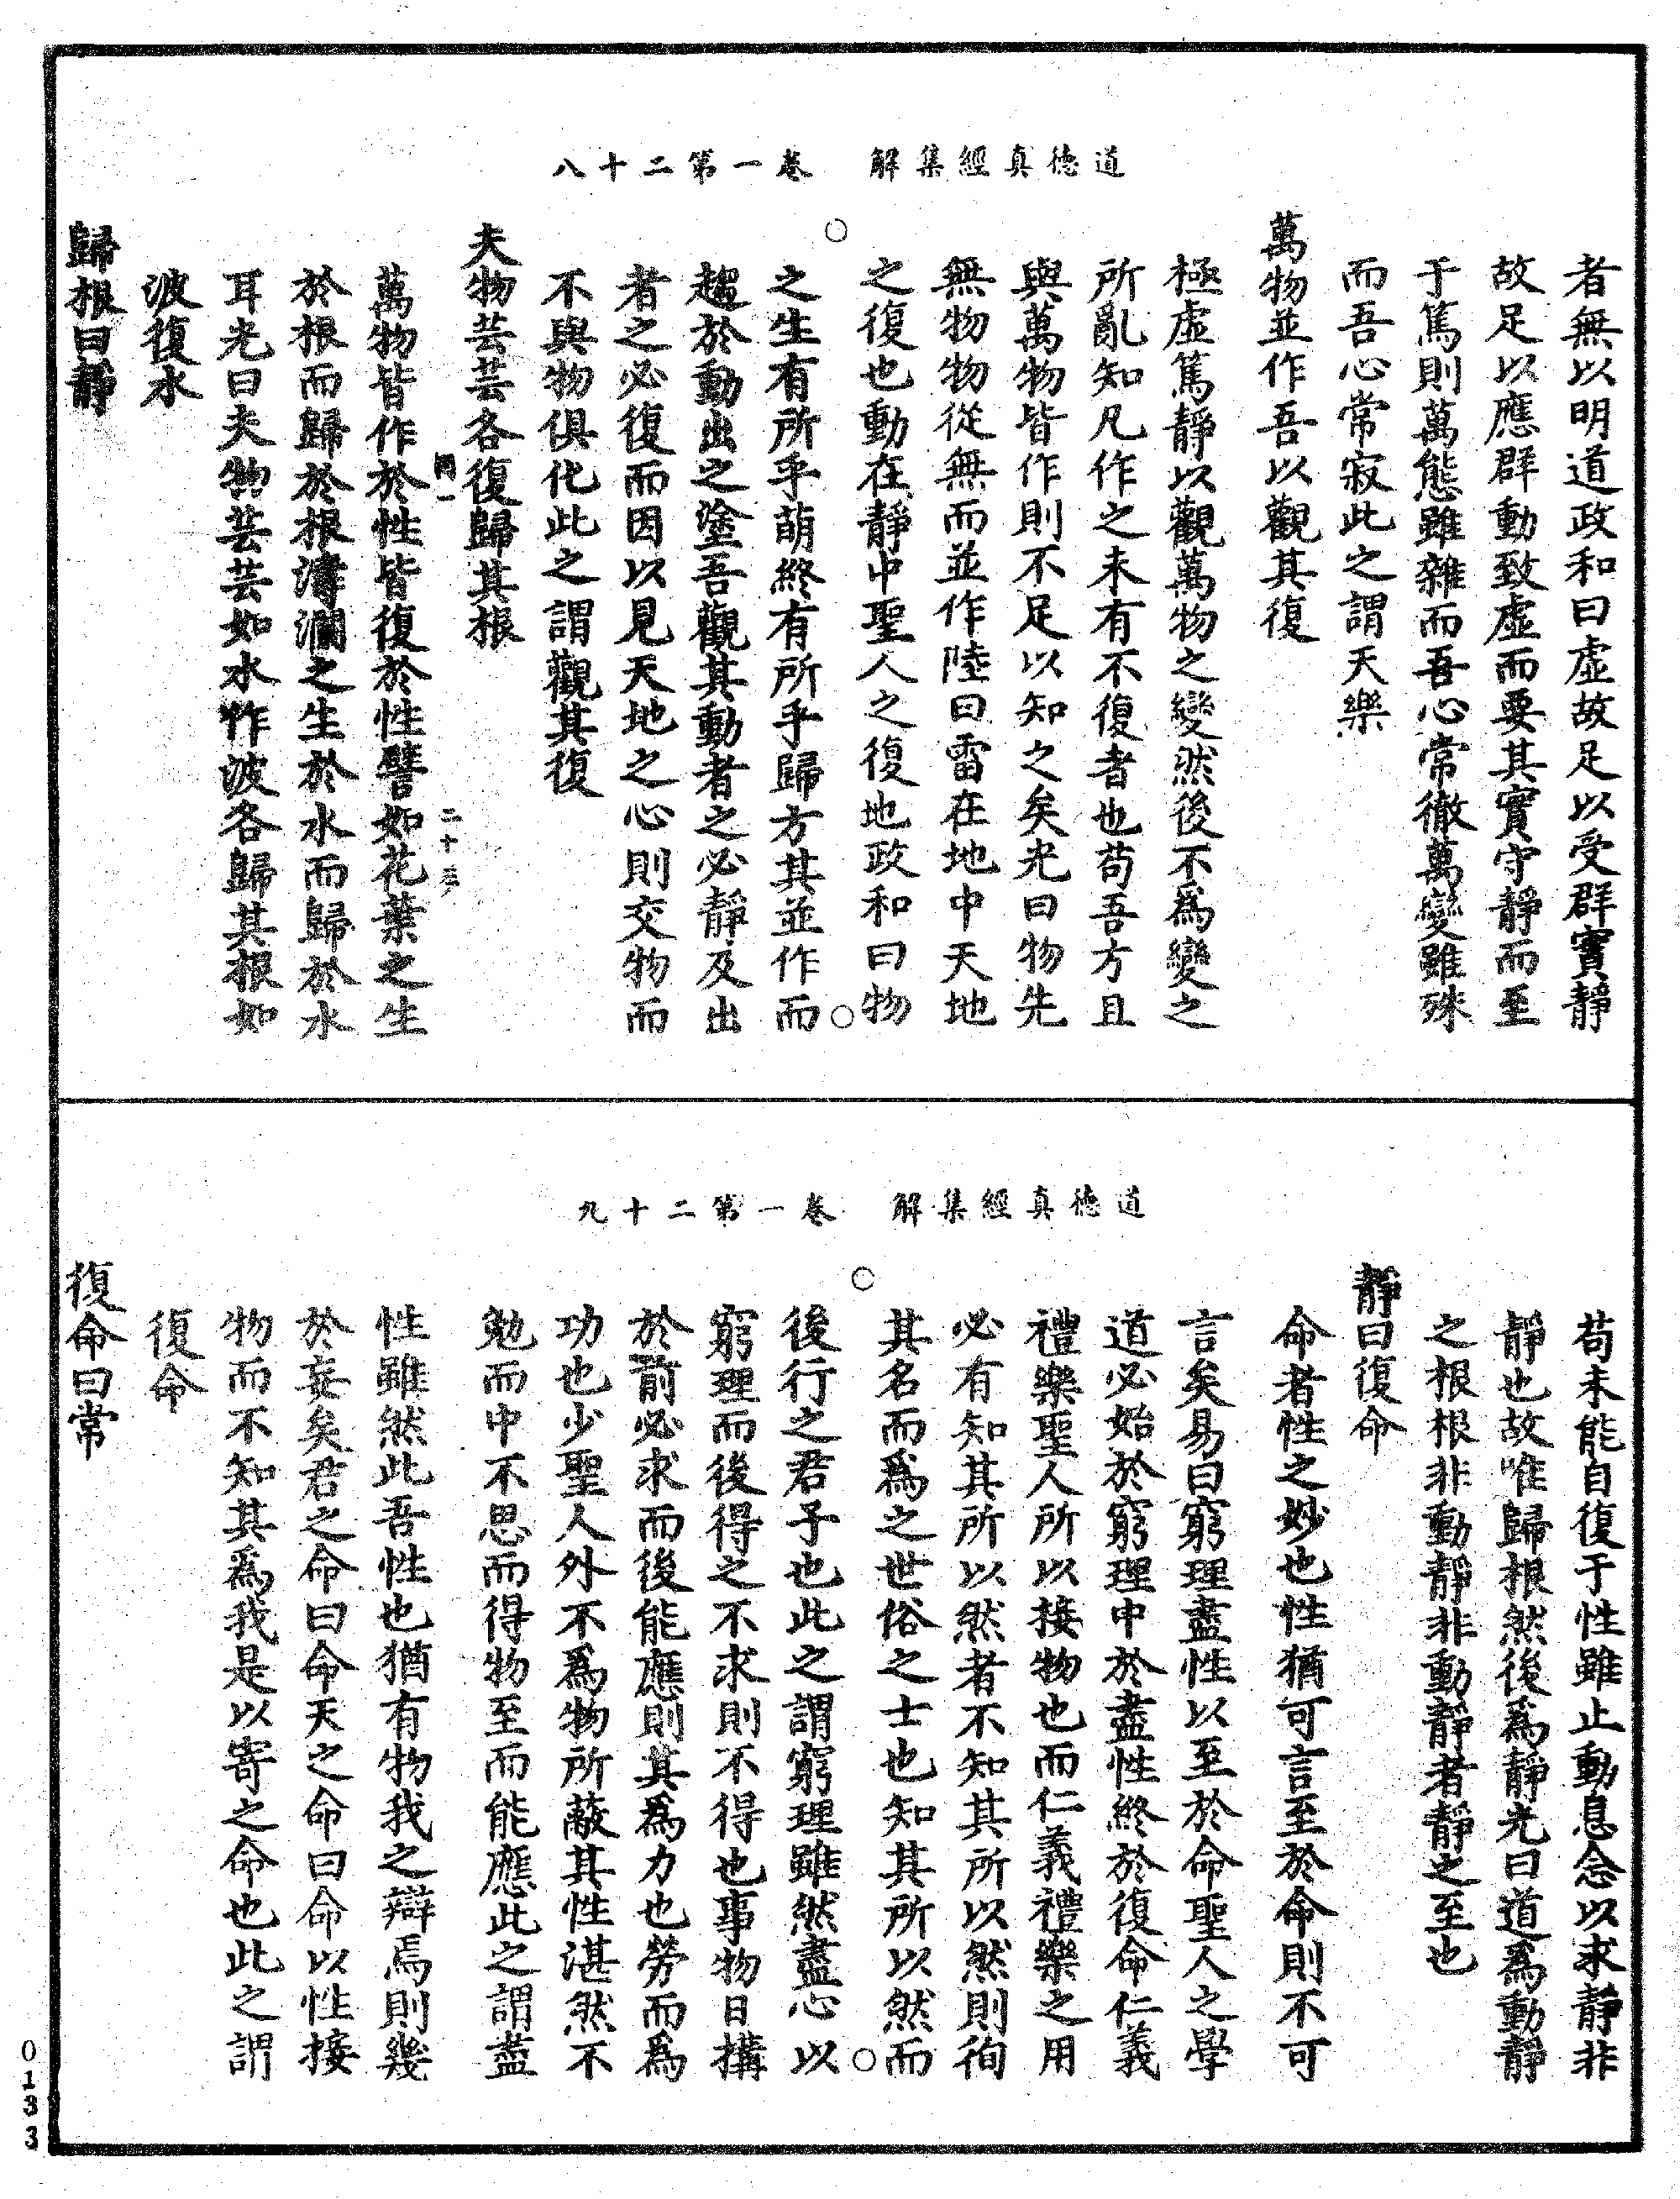 道德真經集解　卷一第二十八
者無以明道政和曰虛故足以受群實靜
故足以應群動致虛而要其實守靜而至
于篤則萬態雖雜而吾心常徹萬變雖殊
而吾心常寂此之謂天樂
萬物並作吾以觀其復
極虛篤靜以觀萬物之變然後不爲變之
所亂知凡作之未有不復者也苟吾方且
與萬物皆作則不足以知之矣光曰物先
無物物從無而並作陸曰雷在地中天地
之復也動在靜中聖人之復地政和曰物
之生有所乎萌終有所乎歸方其並作而
趨於動出之塗吾觀其動者之必靜及出
者之必復而因以見天地之心則交物而
不與物俱化此之謂觀其復
夫物芸芸各復歸其根
二十三
萬物皆作於性皆復於性譬如花葉之生
於根而歸於根濤瀾之生於水而歸於水
耳光曰夫物芸芸如水作波各歸其根如
波復水
歸根曰靜
道德真經集解　卷一第二十九
苟未能自復于性雖止動息念以求靜非
靜也故唯歸根然後爲靜光曰道爲動靜
之根根非動靜非動靜者靜之至也
靜曰復命
命者性之妙也性猶可言至於命則不可
言矣易曰窮理盡性以至於命聖人之學
道必始於窮理中於盡性終於復命仁義
禮樂聖人所以接物也而仁義禮樂之用
必有知其所以然者不知其所以然則徇
其名而爲之世俗之士也知其所以然而
後行之君子也此之謂窮理雖然盡心以
窮理而後得之不求則不得也事物日搆
於前必求而後能應則其爲力也勞而爲
功也少聖人外不爲物所蔽其性湛然不
勉而中不思而得物至而能應此之謂盡
性雖然此吾性也猶有物我之辯焉則幾
於妄矣君之命曰命天之命曰命以性接
物而不知其爲我是以寄之命也此之謂
復命
復命曰常
0133